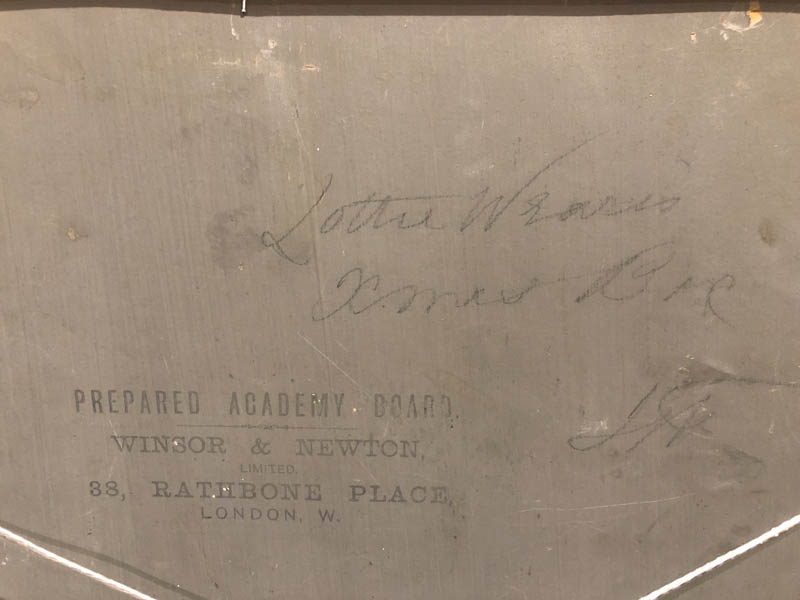 Lottie
Xmas Box
PREPARED ACADEMY BOARD.
WINSOR & NEWTON,
LIMITED.
38, RATHBONE PLACE,
LONDON, W.